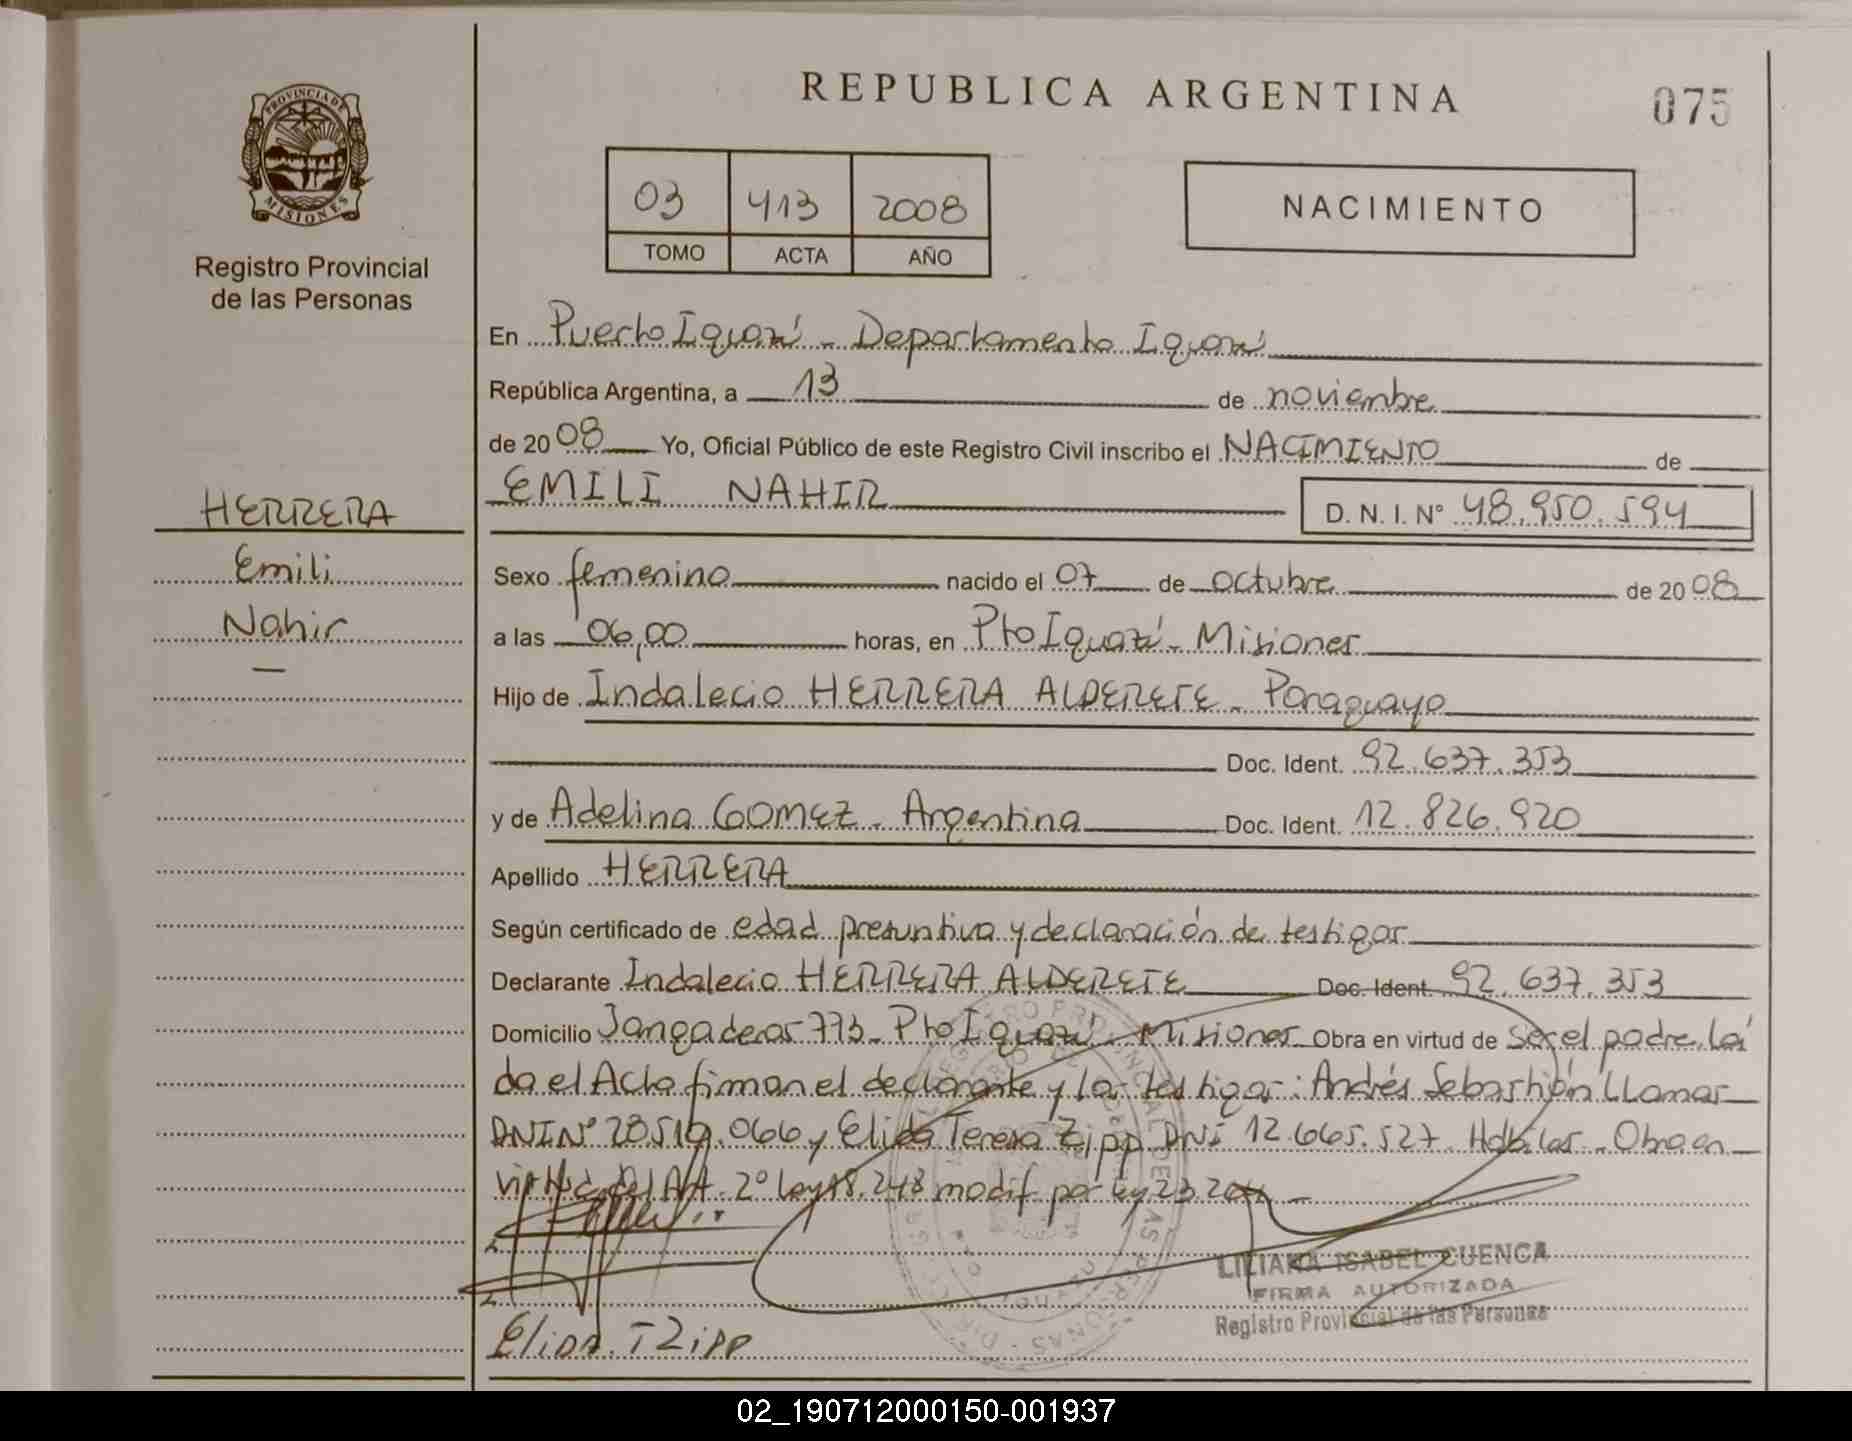 REPUBLICA ARGENTINA
075
PROVINCIA DE
MISIONES
Registro Provincial
de las Personas
03 413 2008
TOMO ACTA AÑO
NACIMIENTO
En Puerto Iguazú - Departamento Iguazú
República Argentina, a 13 de noviembre
de 2008 Yo, Oficial Público de este Registro Civil inscribo el NACIMIENTO de
EMILI NAHIR D. N. I. N° 48.950.594
HERRERA
Emili
Nahir
—
Sexo femenino nacido el 07 de octubre de 2008
a las 06,00 horas, en Pto Iguazú - Misiones
Hijo de Indalecio HERRERA ALDERETE - Paraguayo
Doc. Ident. 92.637.353
y de Adelina GOMEZ - Argentina Doc. Ident. 12.826.920
Apellido HERRERA
Según certificado de edad presuntiva y declaración de testigos
Declarante Indalecio HERRERA ALDERETE Doc. Ident. 92.637.353
Domicilio Jangaderos 773 - Pto Iguazú - Misiones Obra en virtud de ser el padre. Leí
da el Acta firman el declarante y los testigos: Andrés Sebastián LLamas
DNI N° 28.519.066 y Elida Teresa Zipp DNI 12.665.527. Hábiles - Obra en
virtud del Art. 2° Ley 18.248 modif por Ley 23264 -
LILIANA ISABEL CUENCA
FIRMA AUTORIZADA
Registro Provincial de las Personas
Elida. T Zipp
02_190712000150-001937